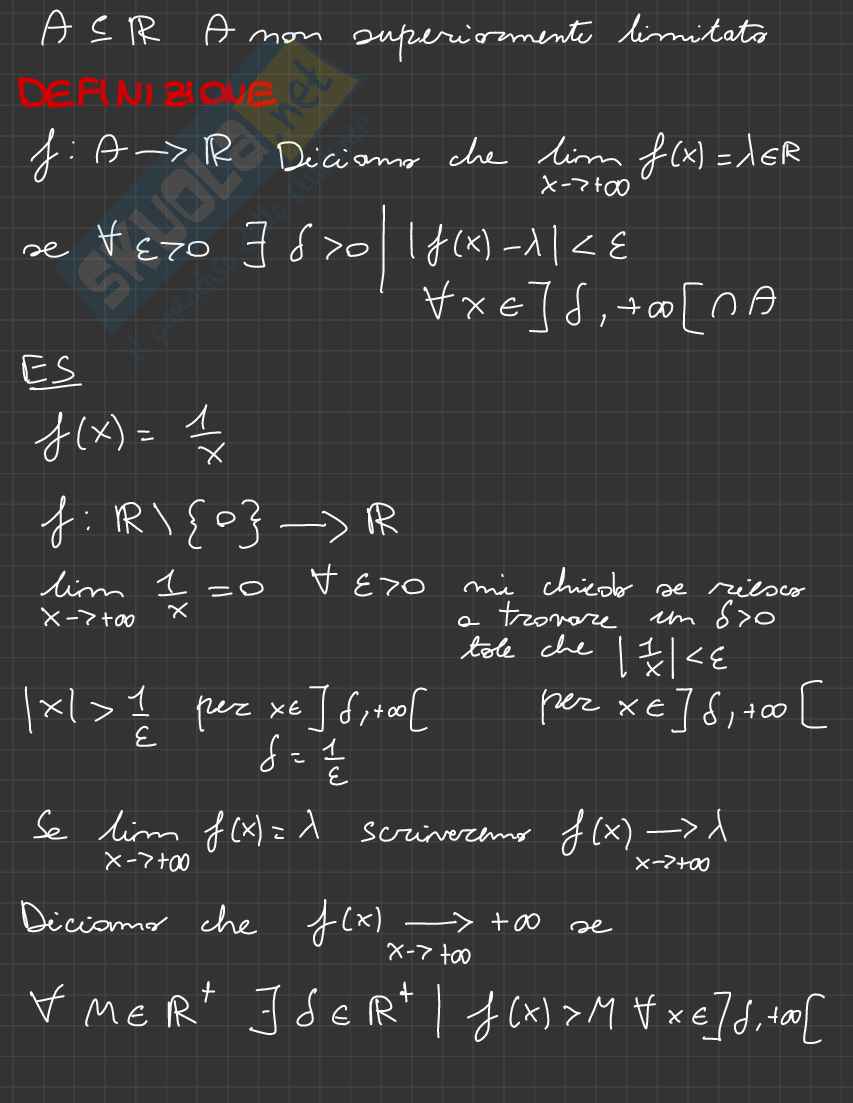 A ⊆ ℝ A non superiormente limitato
DEFINIZIONE
f : A → ℝ Diciamo che lim f(x) = λ ∈ ℝ
x->+∞
se ∀ ε>0 ∃ δ>0 | |f(x) - λ| < ε
∀ x ∈ ]δ, +∞[ ∩ A
ES
f(x) = 1/x
f : ℝ \ {0} → ℝ
lim 1/x = 0 ∀ ε>0 mi chiedo se riesco
x->+∞ a trovare un δ>0
tale che |1/x| < ε
|x| > 1/ε per x∈ ]δ, +∞[ per x ∈ ]δ, +∞[
δ = 1/ε
Se lim f(x) = λ scriveremo f(x) → λ
x->+∞ x->+∞
Diciamo che f(x) → +∞ se
x->+∞
∀ M ∈ ℝ⁺ ∃ δ ∈ ℝ⁺ | f(x) > M ∀ x ∈ ]δ, +∞[
SKUOLA.net